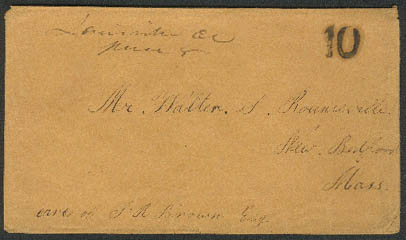 10
Mr. Walter. S. Rounseville.
New. Bedford
Mass.
care of S A Brown Esq.